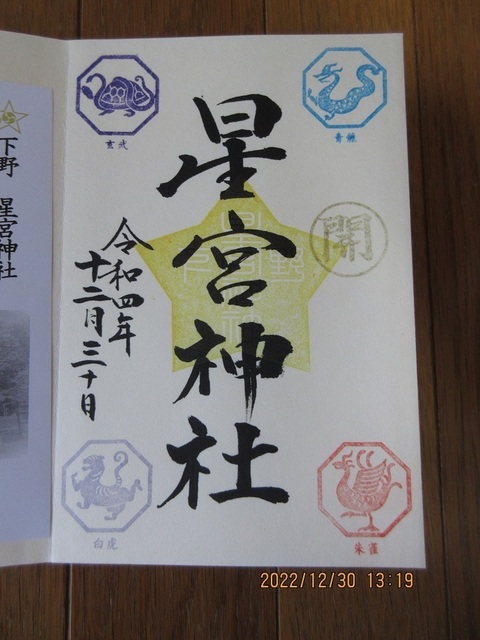 玄武
青龍
開
星宮神社
令和四年
十二月三十日
白虎
朱雀
下野 星宮神社
2022/12/30 13:19